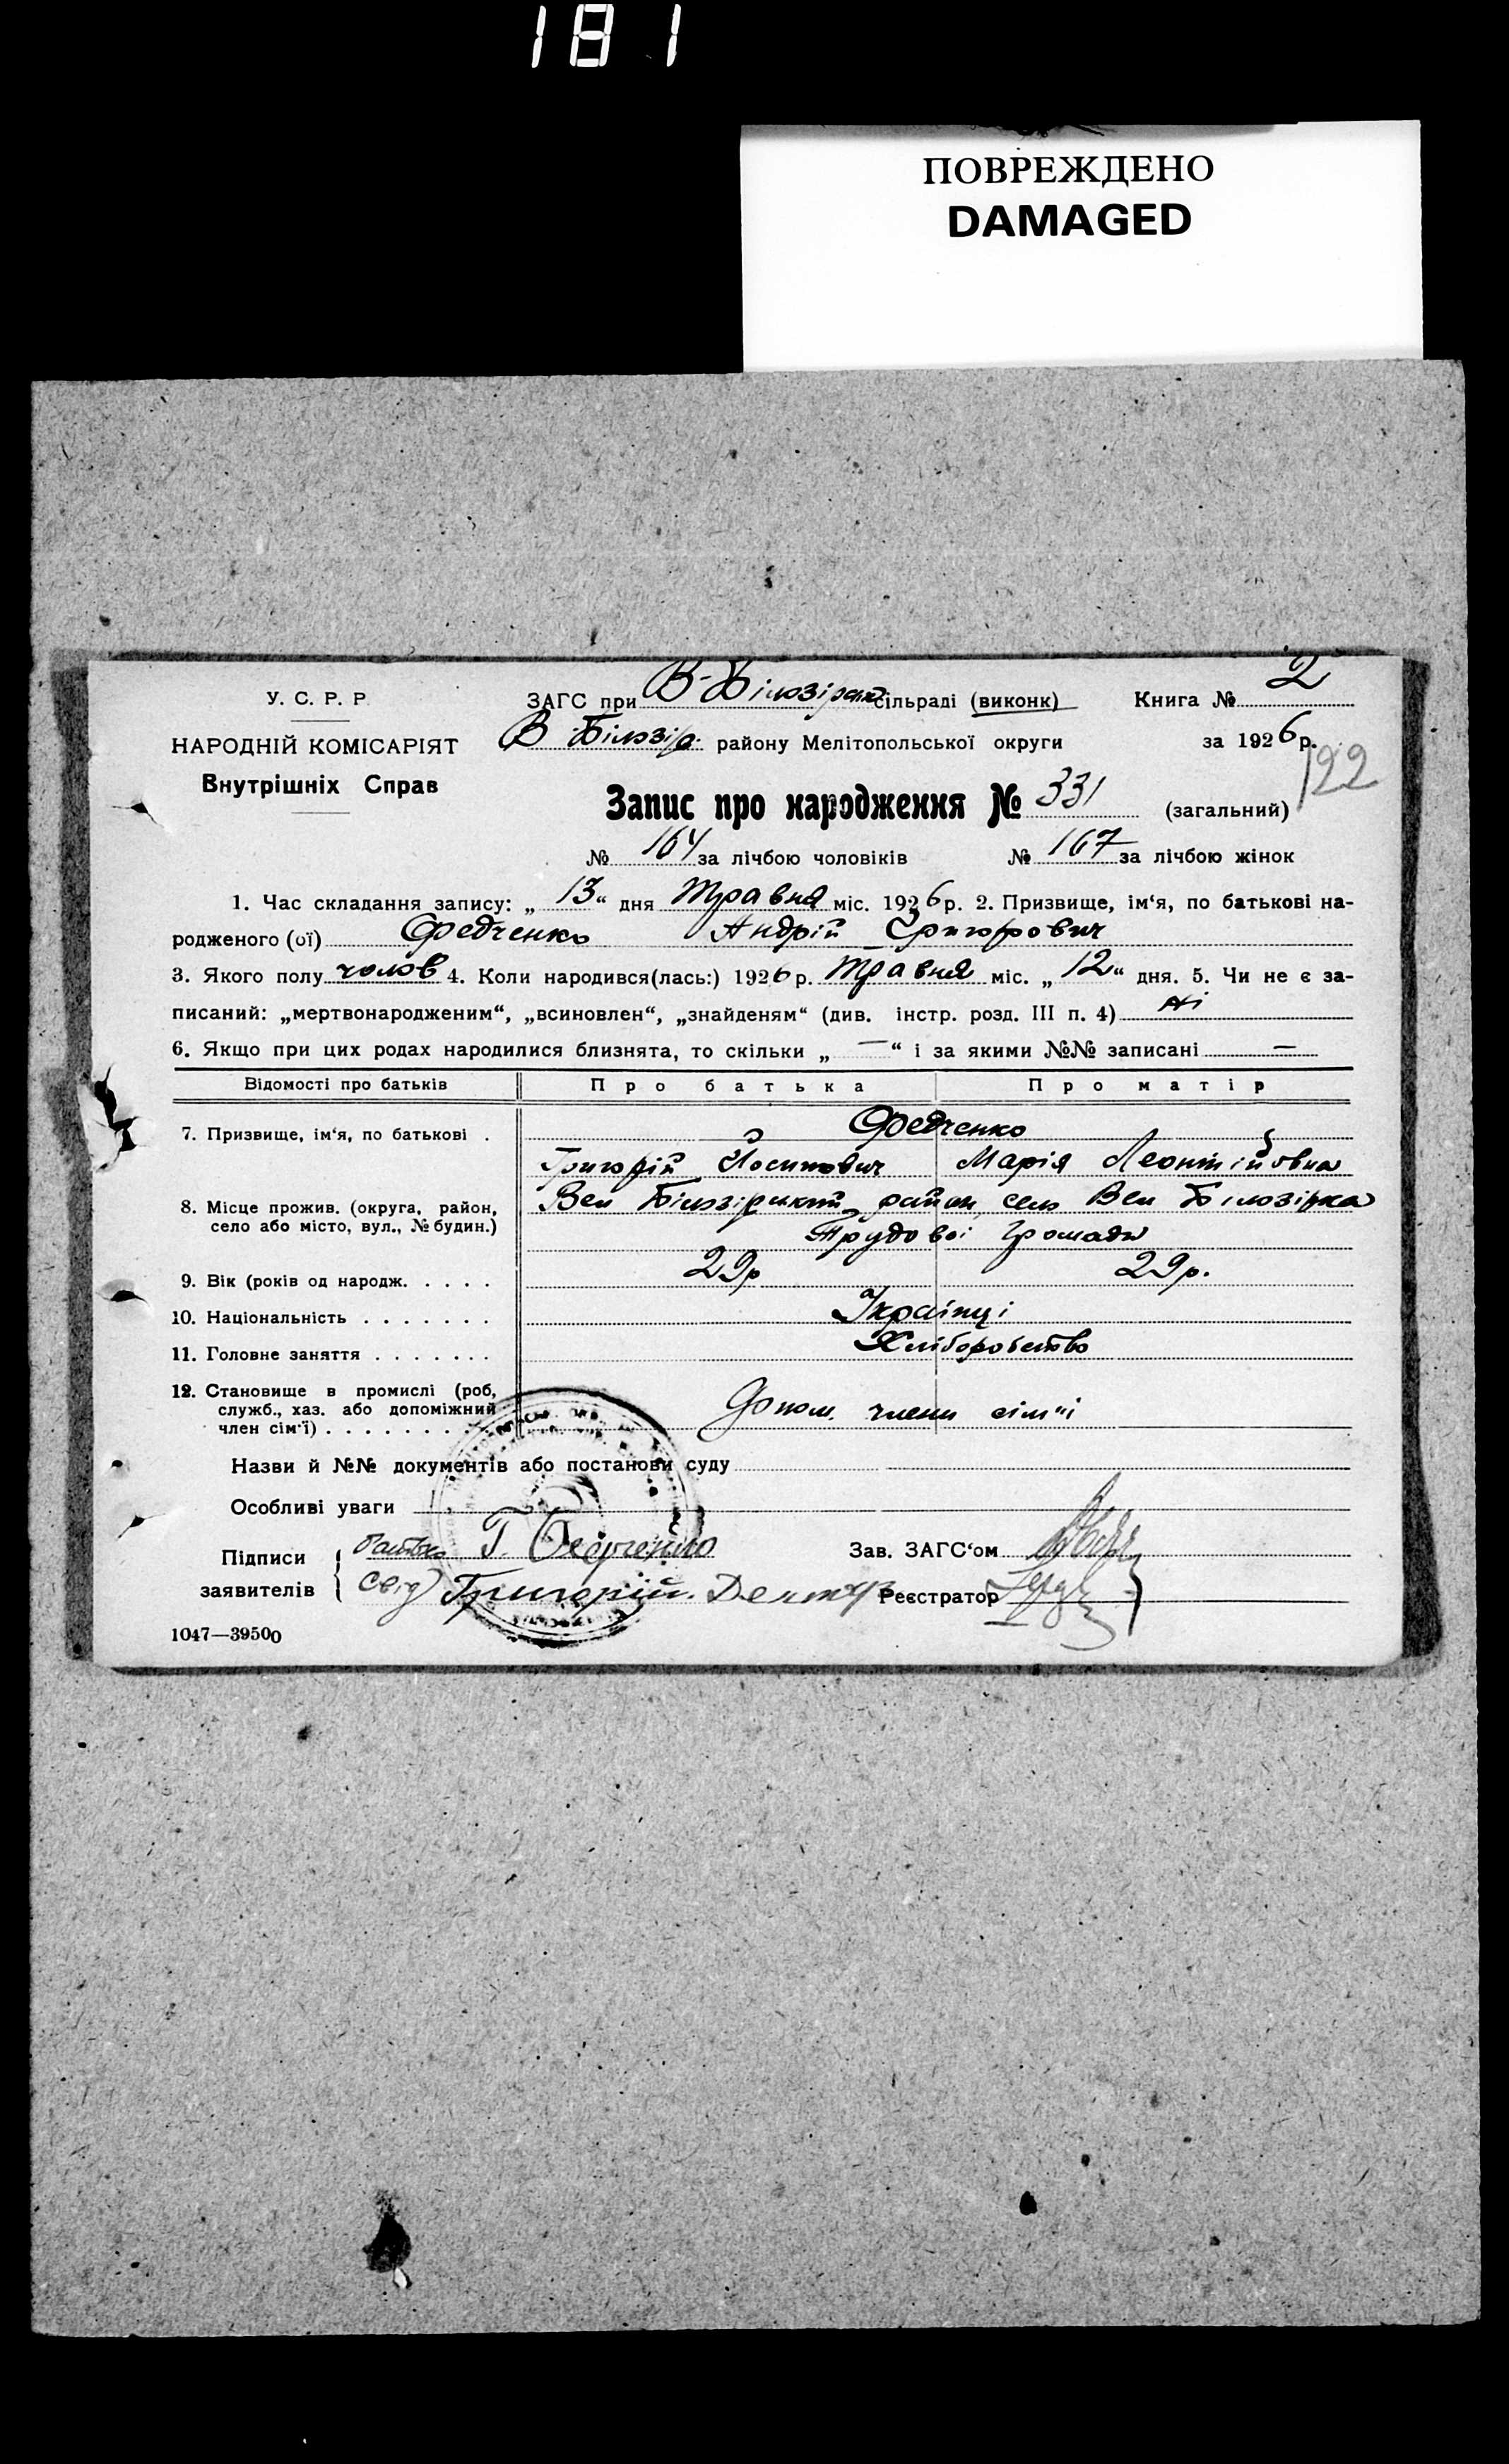 181
ПОВРЕЖДЕНО
DAMAGED
У. С. Р. Р.
НАРОДНІЙ КОМІСАРІЯТ
Внутрішніх Справ
ЗАГС при В-Білозірській сільраді (виконк)
В Білозір. району Мелітопольської округи
Книга № 2
за 1926 р.
122
Запис про народження № 331 (загальний)
№ 164 за лічбою чоловіків № 167 за лічбою жінок
1. Час складання запису: „ 13 “ дня Травня міс. 1926 р. 2. Призвище, ім‘я, по батькові на-
родженого (ої) Федченко Андрій Григорович
3. Якого полу чолов 4. Коли народився(лась:) 1926 р. Травня міс. „ 12 “ дня. 5. Чи не є за-
писаний: „мертвонародженим“, „всиновлен“, „знайденям“ (див. інстр. розд. III п. 4) ні
6. Якщо при цих родах народилися близнята, то скільки „ — “ і за якими №№ записані —
Відомості про батьків Про батька Про матір
7. Призвище, ім‘я, по батькові . Федченко
Григорій Йосипович Марія Леонтійовна
8. Місце прожив. (округа, район, село або місто, вул., № будин.) Вел Білозірський район село Вел Білозірка
Трудової Громади
9. Вік (років од народж. . . . . 29р 29р.
10. Національність . . . . . . . Українці
11. Головне заняття . . . . . . . Хліборобство
12. Становище в промислі (роб,
служб., хаз. або допоміжний
член сім‘ї) . . . . . . . . Допом. члени сім"ї
Назви й №№ документів або постанови суду
Особливі уваги
Підписи
заявителів
батько Г. Федченко
Свід) Григорій.
Зав. ЗАГС‘ом
Реєстратор
1047—39500